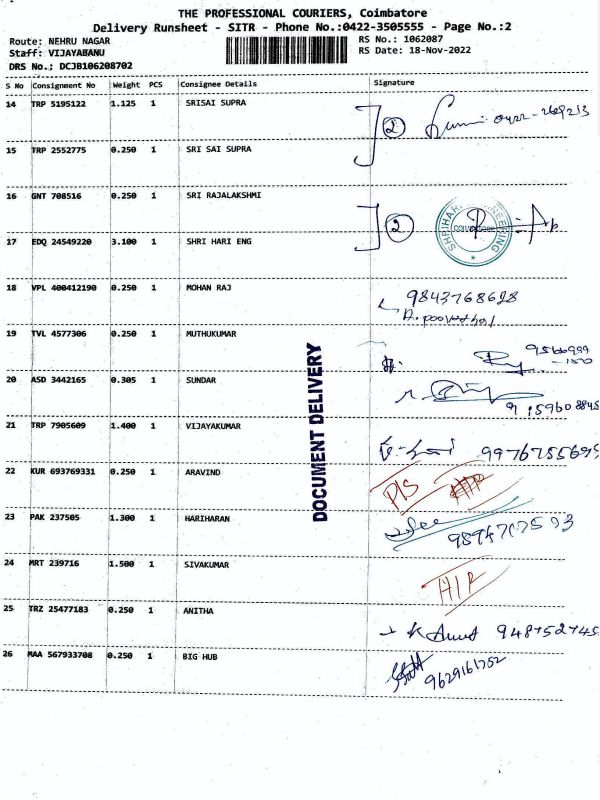 THE PROFESSIONAL COURIERS, Coimbatore
Delivery Runsheet - SITR - Phone No.:0422-3505555 - Page No.:2
Route: NEHRU NAGAR
RS No.: 1062087
Staff: VIJAYABANU
RS Date: 18-Nov-2022
DRS No.; DCJB106208702
S No Consignment No Weight PCS Consignee Details Signature
14 TRP 5195122 1.125 1 SRISAI SUPRA
2
15 TRP 2552775 0.250 1 SRI SAI SUPRA
16 GNT 708516 0.250 1 SRI RAJALAKSHMI
2
SHRIHARI ENGINEERING
COIMBATORE
17 EDQ 24549220 3.100 1 SHRI HARI ENG
18 VPL 400412190 0.250 1 MOHAN RAJ
9843768628
19 TVL 4577306 0.250 1 MUTHUKUMAR
20 ASD 3442165 0.305 1 SUNDAR
21 TRP 7905609 1.400 1 VIJAYAKUMAR
22 KUR 693769331 0.250 1 ARAVIND
23 PAK 237505 1.300 1 HARIHARAN
24 MRT 239716 1.500 1 SIVAKUMAR
25 TRZ 25477183 0.250 1 ANITHA
26 MAA 567933708 0.250 1 BIG HUB
9629161752
DOCUMENT DELIVERY